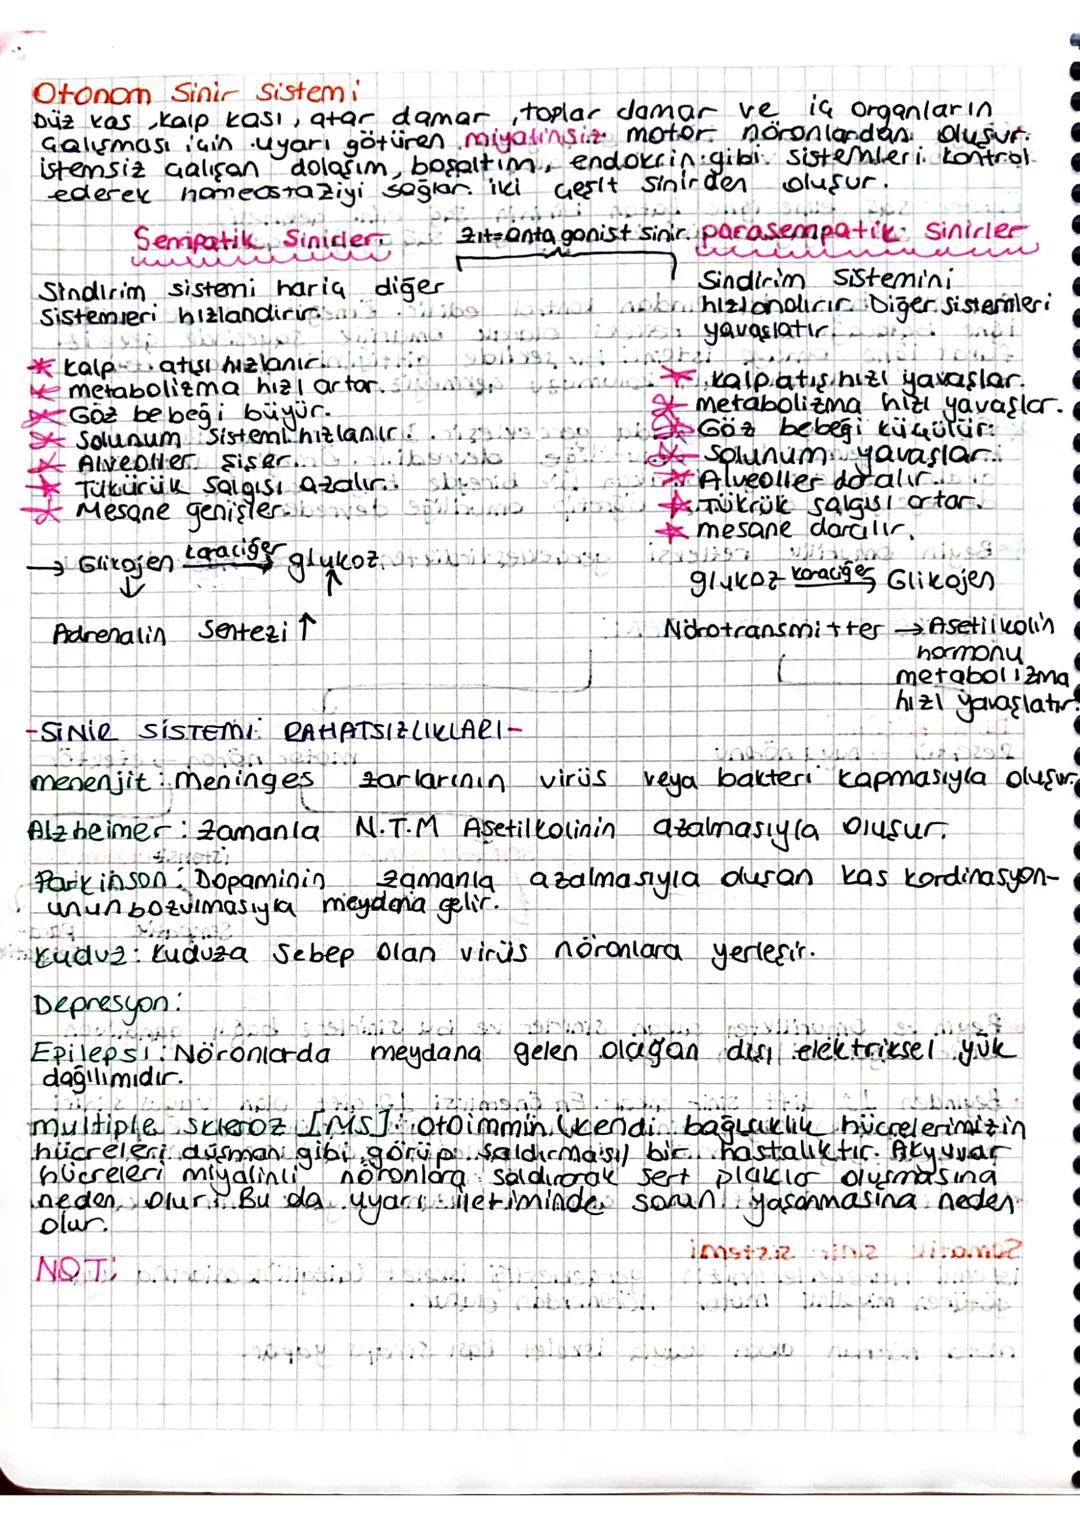 Otonom Sinir Sistemi
Düz kas, kalp kası, atar damar, toplar damar ve iç organların
Çalışması için uyarı götüren miyalinsiz motor nöronlardan oluşur.
istemsiz çalışan dolaşım, boşaltım, endokrin gibi sistemleri kontrol
ederek homeostaziyi sağlar. iki çeşit sinirden oluşur.
Sempatik Sinirler
zıt=antagonist sinir
parasempatik sinirler
Sindirim sistemi hariç diğer
Sistemleri hızlandırır.
* kalp atışı hızlanır.
* metabolizma hızı artar.
* Göz bebeği büyür.
* Solunum sistemi hızlanır.
* Alveoller şişer.
* Tükürük Salgısı azalır.
* Mesane genişler.
→ Glikojen karaciğer → glukoz
↓ ↑
Adrenalin Sentezi ↑
Sindirim Sistemini
hızlandırır. Diğer sistemleri
yavaşlatır.
* kalp atış hızı yavaşlar.
* metabolizma hızı yavaşlar.
* Göz bebeği küçülür.
* Solunum yavaşlar.
* Alveoller daralır.
* Tükrük salgısı artar.
* mesane daralır.
glukoz karaciğer → Glikojen
Nörotransmitter → Asetilkolin
hormonu
metabolizma
hızı yavaşlatır.
-SİNİR SİSTEMİ RAHATSIZLIKLARI-
menenjit: meninges zarlarının virüs veya bakteri kapmasıyla oluşur.
Alzheimer: zamanla N.T.M Asetilkolinin azalmasıyla oluşur.
Parkinson: Dopaminin zamanla azalmasıyla oluşan kas kordinasyon-
unun bozulmasıyla meydana gelir.
Kuduz: Kuduza Sebep olan virüs nöronlara yerleşir.
Depresyon:
Epilepsi: Nöronlarda meydana gelen olağan dışı elektriksel yük
dağılımıdır.
multiple skleroz [MS]: otoimmin (kendi bağışıklık hücrelerimizin
hücreleri düşman gibi görüp saldırması) bir hastalıktır. Akyuvar
hücreleri miyalinli nöronlara saldırarak sert plaklar oluşmasına
neden olur. Bu da uyarı iletiminde sorun yaşanmasına neden
olur.
NOT: